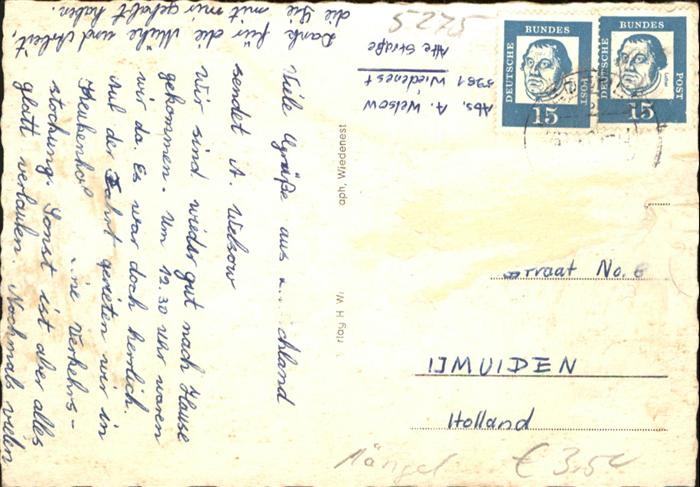 Viele Grüße aus
sendet A. Welsow
Wir sind wieder gut nach Hause
gekommen. Um 12.30 Uhr waren
wir da. Es war doch herrlich.
Auf der Fahrt gerieten wir in
ine Verkehrs-
stockung. Sonst ist aber alles
glatt verlaufen. Nochmals vielen
Dank für die Mühe und Arbeit,
die Sie mit mir gehabt haben.
Abs. A. Welsow
Wiedenest
Alte Straße
5275
DEUTSCHE
BUNDES
POST
15
DEUTSCHE
BUNDES
POST
Luther
15
rlag H
oph, Wiedenest
rraat No.
IJMUIDEN
Holland
Mängel € 3.50